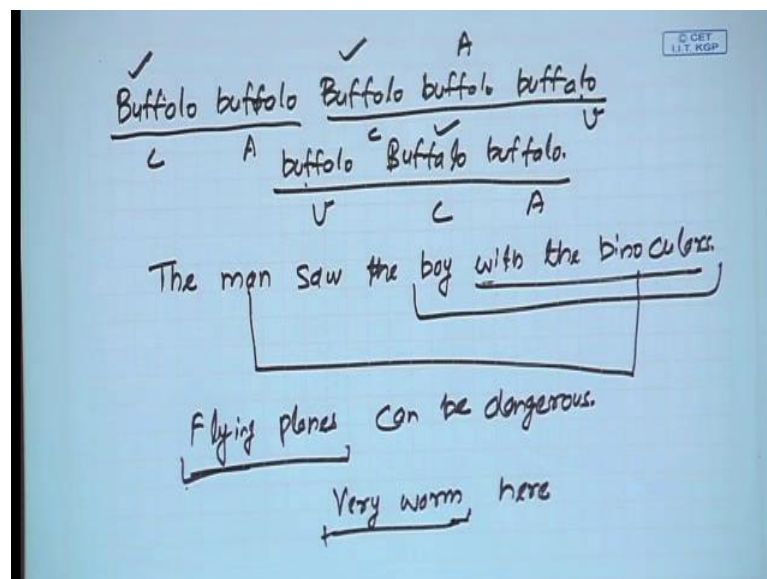 © CET
I.I.T. KGP
A
Buffolo buffolo Buffolo buffolo buffalo
C A C V
buffolo Buffalo buffalo.
V C A
The man saw the boy with the binoculars.
Flying planes can be dangerous.
Very worm here